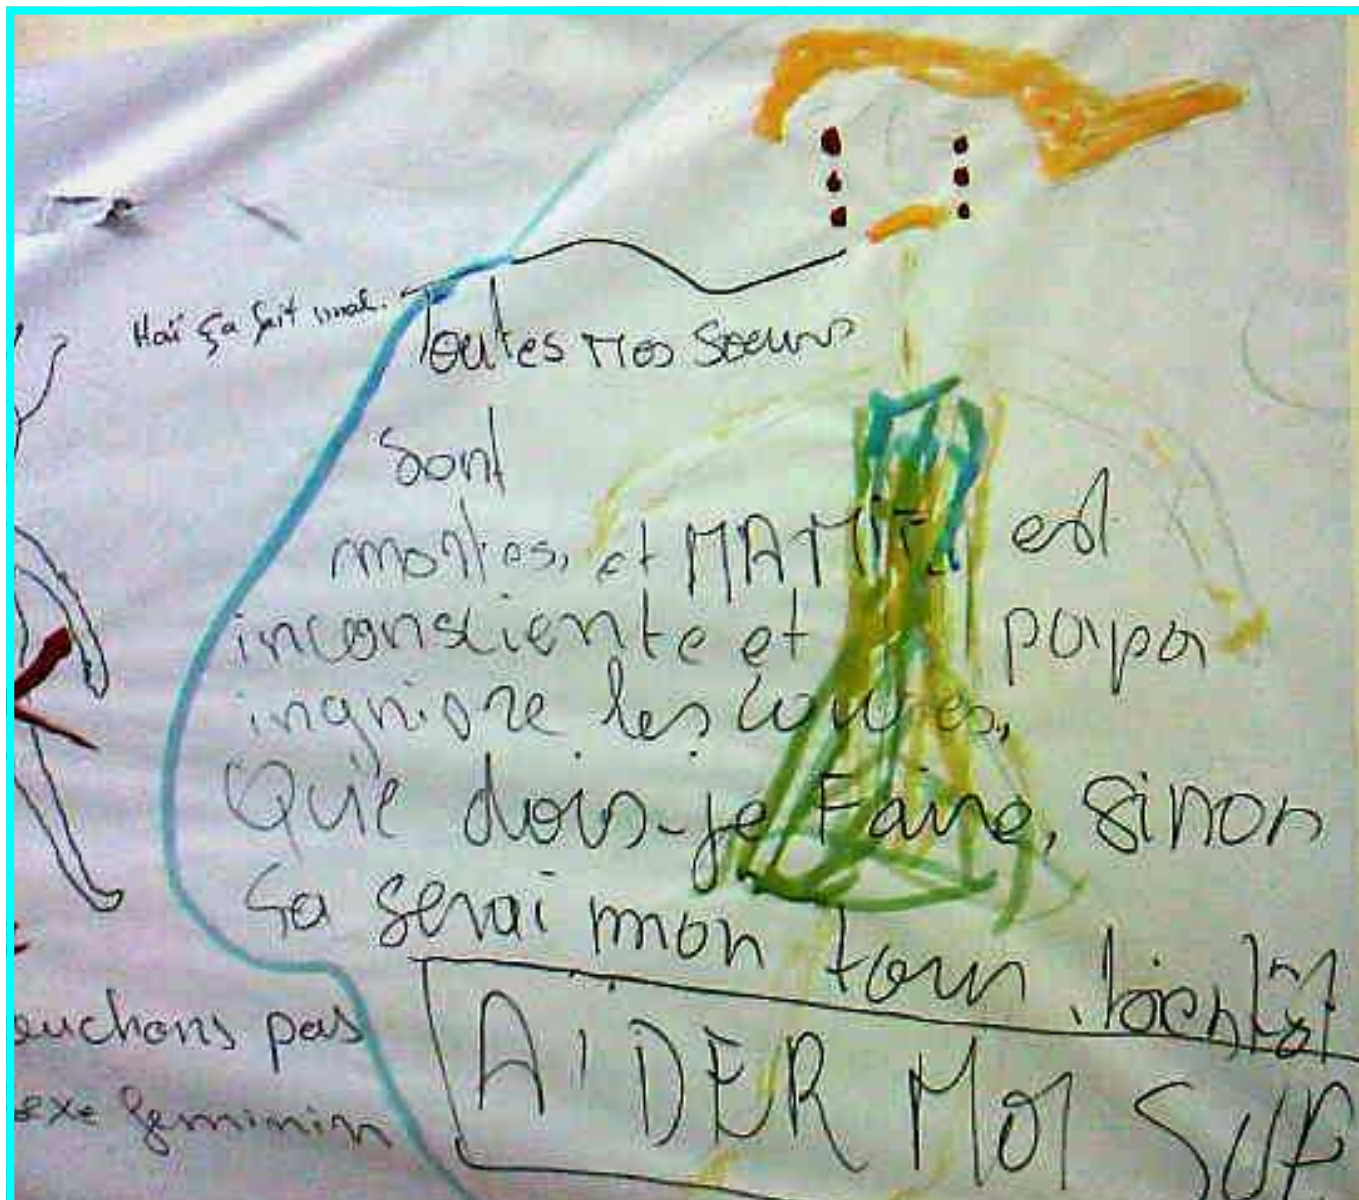 Haï ça fait mal.
Toutes mes soeurs
sont
mortes, et MAMIE est
inconsciente et papa
ingniore les
Que dois-je Faire, sinon
Sa serai mon tour bientôt
AIDER MOI SUP
ouchons pas
exe feminin